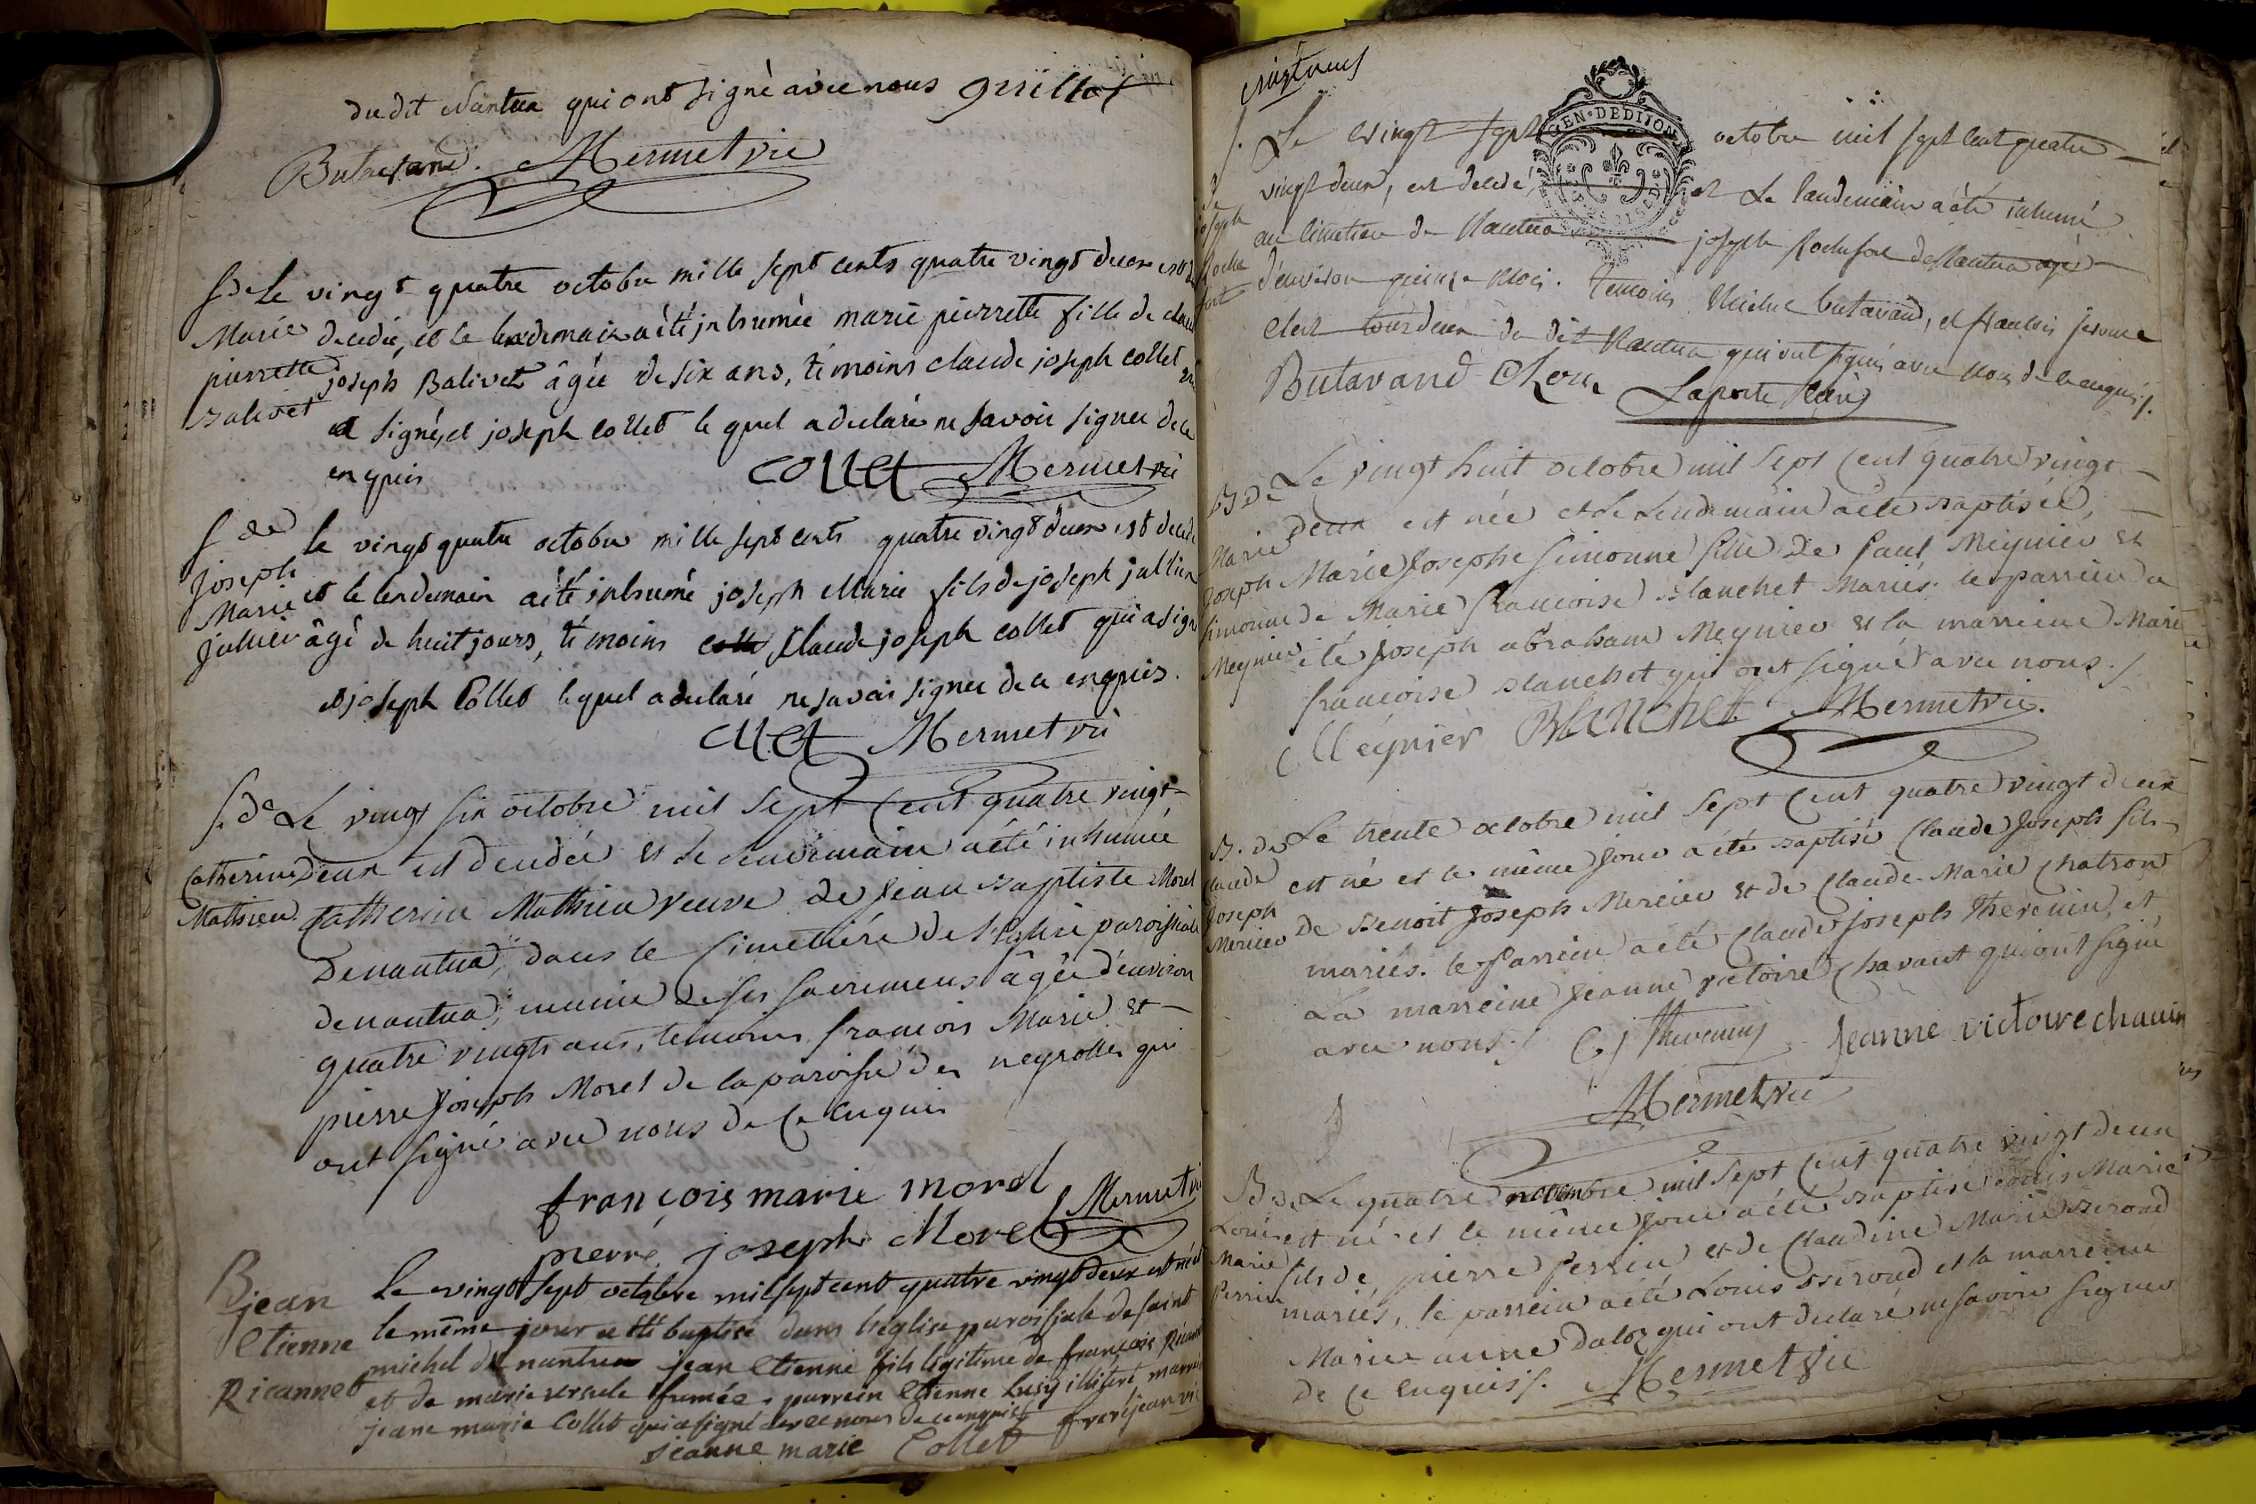 du dit Nantua qui ont signé avec nous guillot
Butavand. Mermet vic
S de Marie pierrette Balivet
Le vingt quatre octobre mille sept cents quatre vingt deux est
decedée, et le lendemain a été inhumée marie pierrette fille de claude
joseph Balivet âgée de six ans, témoins claude joseph collet qui
a signé, et joseph collet le quel a declaré ne savoir signer de ce
enquis
collet Mermet vic
S de Joseph Marie Jullien
le vingt quatre octobre mille sept cents quatre vingt deux est decedé
et le lendemain a été inhumé joseph Marie fils de joseph jullien
âgé de huit jours, témoins claude joseph collet qui a signé
et joseph Collet lequel a declaré ne savoir signer de ce enquis.
Collet Mermet vic
S. de Catherine Mathieu
Le vingt six octobre mil sept cent quatre vingt
deux est decedée et le lendemain a été inhumée
Catherine Mathieu veuve de Jean Baptiste Morel
de nantua, dans le Cimetière de l'Eglise paroissiale
de nantua, munie de ses sacremens âgée d'environ
quatre vingts ans, temoins françois Marie et
pierre Joseph Morel de la paroisse des neyrolles qui
ont signé avec nous de ce enquis
françois marie morel Mermet vic
pierre joseph Morel
B jean Etienne Ricannet
le vingt sept octobre mil sept cent quatre vingt deux est né et
le même jour a été baptisé dans l'église paroissiale de saint
michel de nantua jean Etienne fils légitime de françois
et de marie ursule parrein Etienne illiteré marreine
jeane marie Collet qui a signé avec nous de ce enquis
jeanne marie Collet frerejean vic
vingt neuf
S. de Joseph Rochefort
Le vingt sept octobre mil sept cent quatre
vingt deux, est decedé et le lendemain a été inhumé
au cimetiere de Nantua joseph Rochefort de Nantua agé
d'environ quinze mois. Temoins Michel butavand, et francois jerome
du dit Nantua qui ont signé avec nous de ce enquis.
Butavand Laporte
GEN·DEDIJON
B. de Marie Joseph Simonne Meynier
Le vingt huit octobre mil sept cent quatre vingt
deux est née et le lendemain a été baptisée,
Marie Josephe Simonne fille de Paul Meynier et
de Marie francoise Blanchet Mariés. le parrein a
été Joseph abraham Meynier et la marreine Marie
francoise Blanchet qui ont signé avec nous.
Meynier Blanchet Mermet vic.
B. de Claude Joseph Mercier
Le trente octobre mil sept cent quatre vingt deux
est né et le même jour a été baptisé Claude Joseph fils
de Benoit Joseph Mercier et de Claude Marie Chatron
mariés. le parrein a été Claude Joseph Thevenin, et
La marreine Jeanne victoire Chavant qui ont signé
avec nous. C j thevenin Jeanne victoire chavin
Mermet vic
B. de Louis Marie Perrin
Le quatre novembre mil sept cent quatre vingt deux
est né et le même jour a été baptisé Louis Marie
fils de pierre perrin et de Claudine Marie Beroud
mariés, le parrein a été Louis Beroud et la marreine
Marie anne daloz qui ont declaré ne savoir signer
de ce enquis. Mermet vic